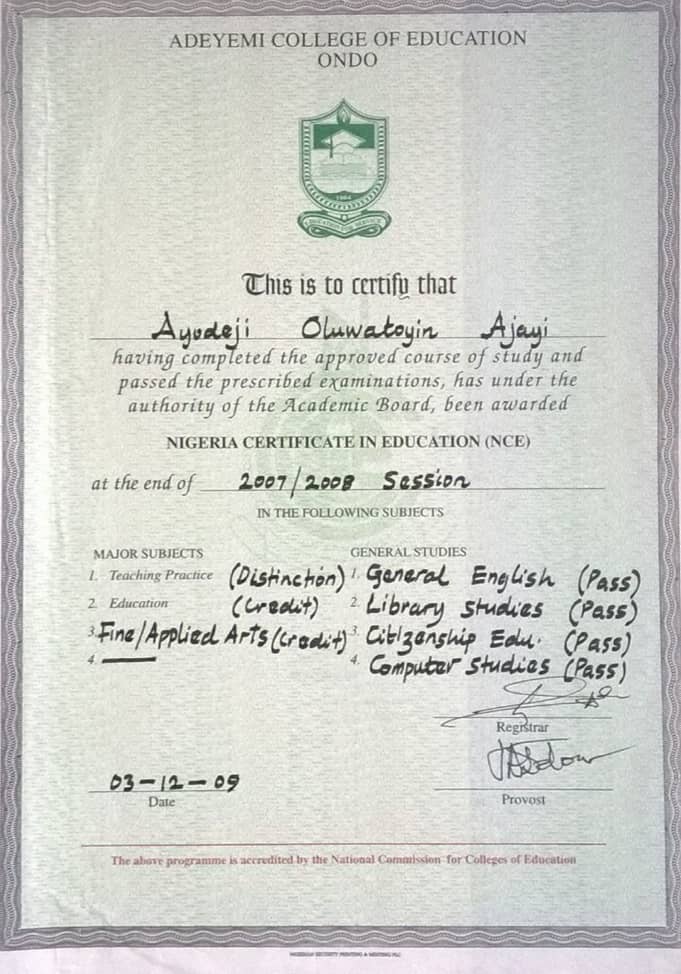 ADEYEMI COLLEGE OF EDUCATION
ONDO
1964
EDUCATION FOR SERVICE
This is to certify that
Ayodeji Oluwatoyin Ajayi
having completed the approved course of study and
passed the prescribed examinations, has under the
authority of the Academic Board, been awarded
NIGERIA CERTIFICATE IN EDUCATION (NCE)
at the end of 2007/2008 Session
IN THE FOLLOWING SUBJECTS
MAJOR SUBJECTS
1. Teaching Practice (Distinction)
2. Education (Credit)
3. Fine/Applied Arts (Credit)
4. —
GENERAL STUDIES
1. General English (Pass)
2. Library Studies (Pass)
3. Citizenship Edu. (Pass)
4. Computer Studies (Pass)
Registrar
03-12-09
Date
Provost
The above programme is accredited by the National Commission for Colleges of Education
NIGERIAN SECURITY PRINTING & MINTING PLC